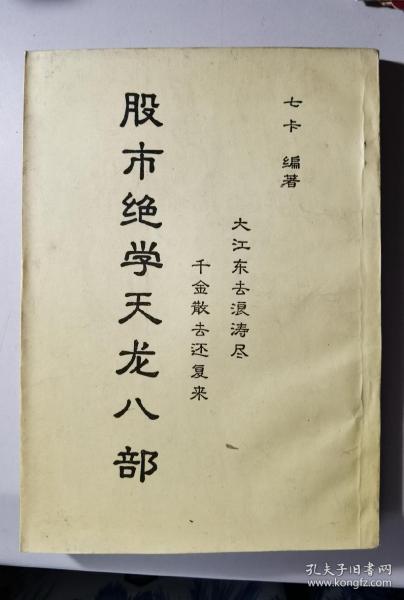 七卡 编著
大江东去浪涛尽
千金散去还复来
股市绝学天龙八部
孔夫子旧书网
www.kongfz.com